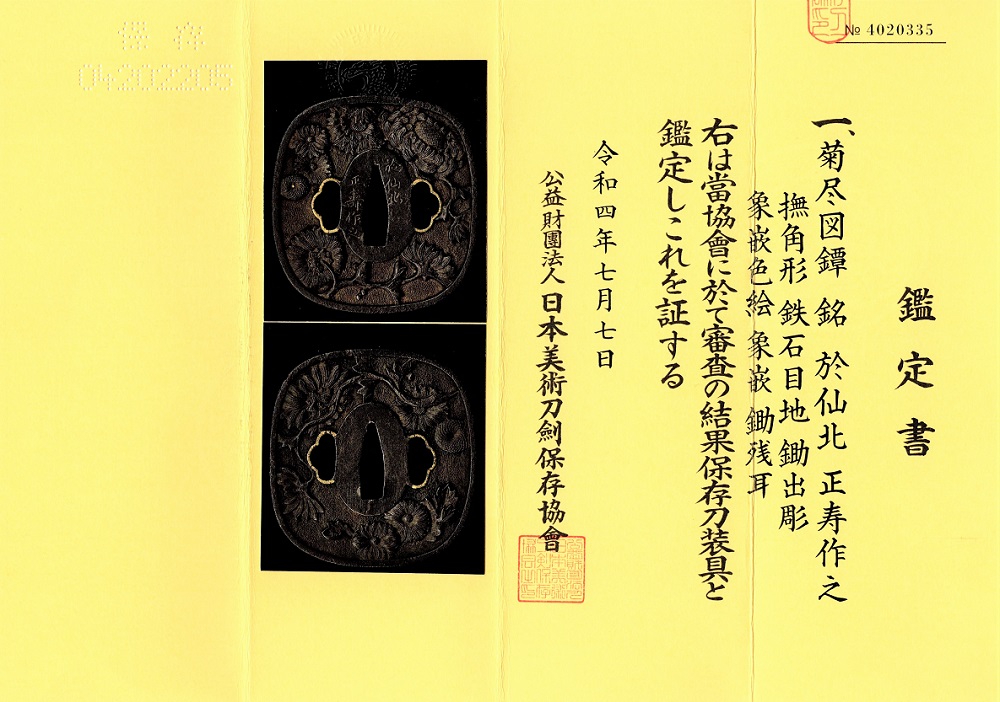 № 4020335
鑑定書
一、菊尽図鐔 銘 於仙北 正寿作之
撫角形 鉄石目地 鋤出彫
象嵌色絵 象嵌 鋤残耳
右は當協會に於て審査の結果保存刀装具と
鑑定しこれを証する
令和四年七月七日
公益財團法人 日本美術刀劍保存協會
保存
04202205
於仙北
正寿作之